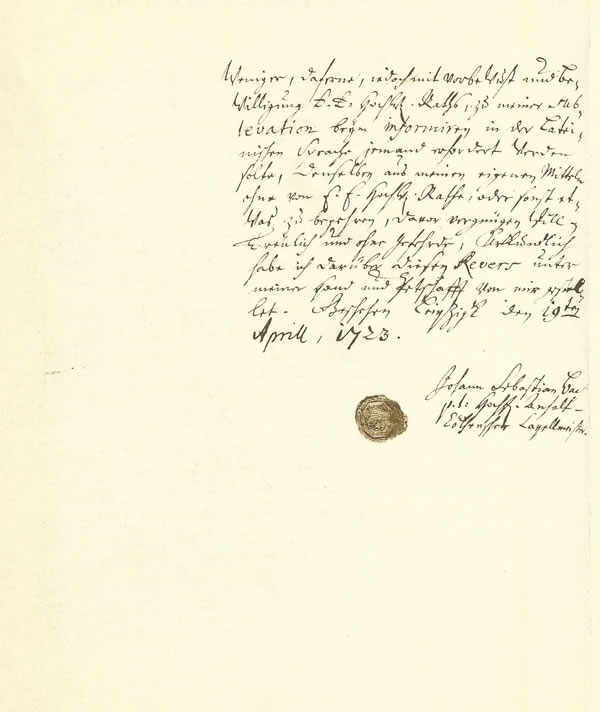 Weniger, daferne, iedoch mit vorbewust und Be-
willigung E. E. Hochw. Raths, zu meiner Sub-
levation beym informiren in der Latei-
nischen Sprache jemand erfordert werden
solte, denselben aus meinen eigenen Mitteln
ohne von E. E. Hochw. Rathe, oder sonst et-
was zu begehren, davor vergnügen will
Treulich und ohne Gefehrde, Uhrkundlich
habe ich darüber diesen Revers unter
meiner Hand und Petschafft von mir gestel-
let. Geschehen Leipzigk den 19ten
Aprill, 1723.
Johann Sebastian Bac
p. t. Hochf. Anhalt-
Cöthenscher Capellmeister.